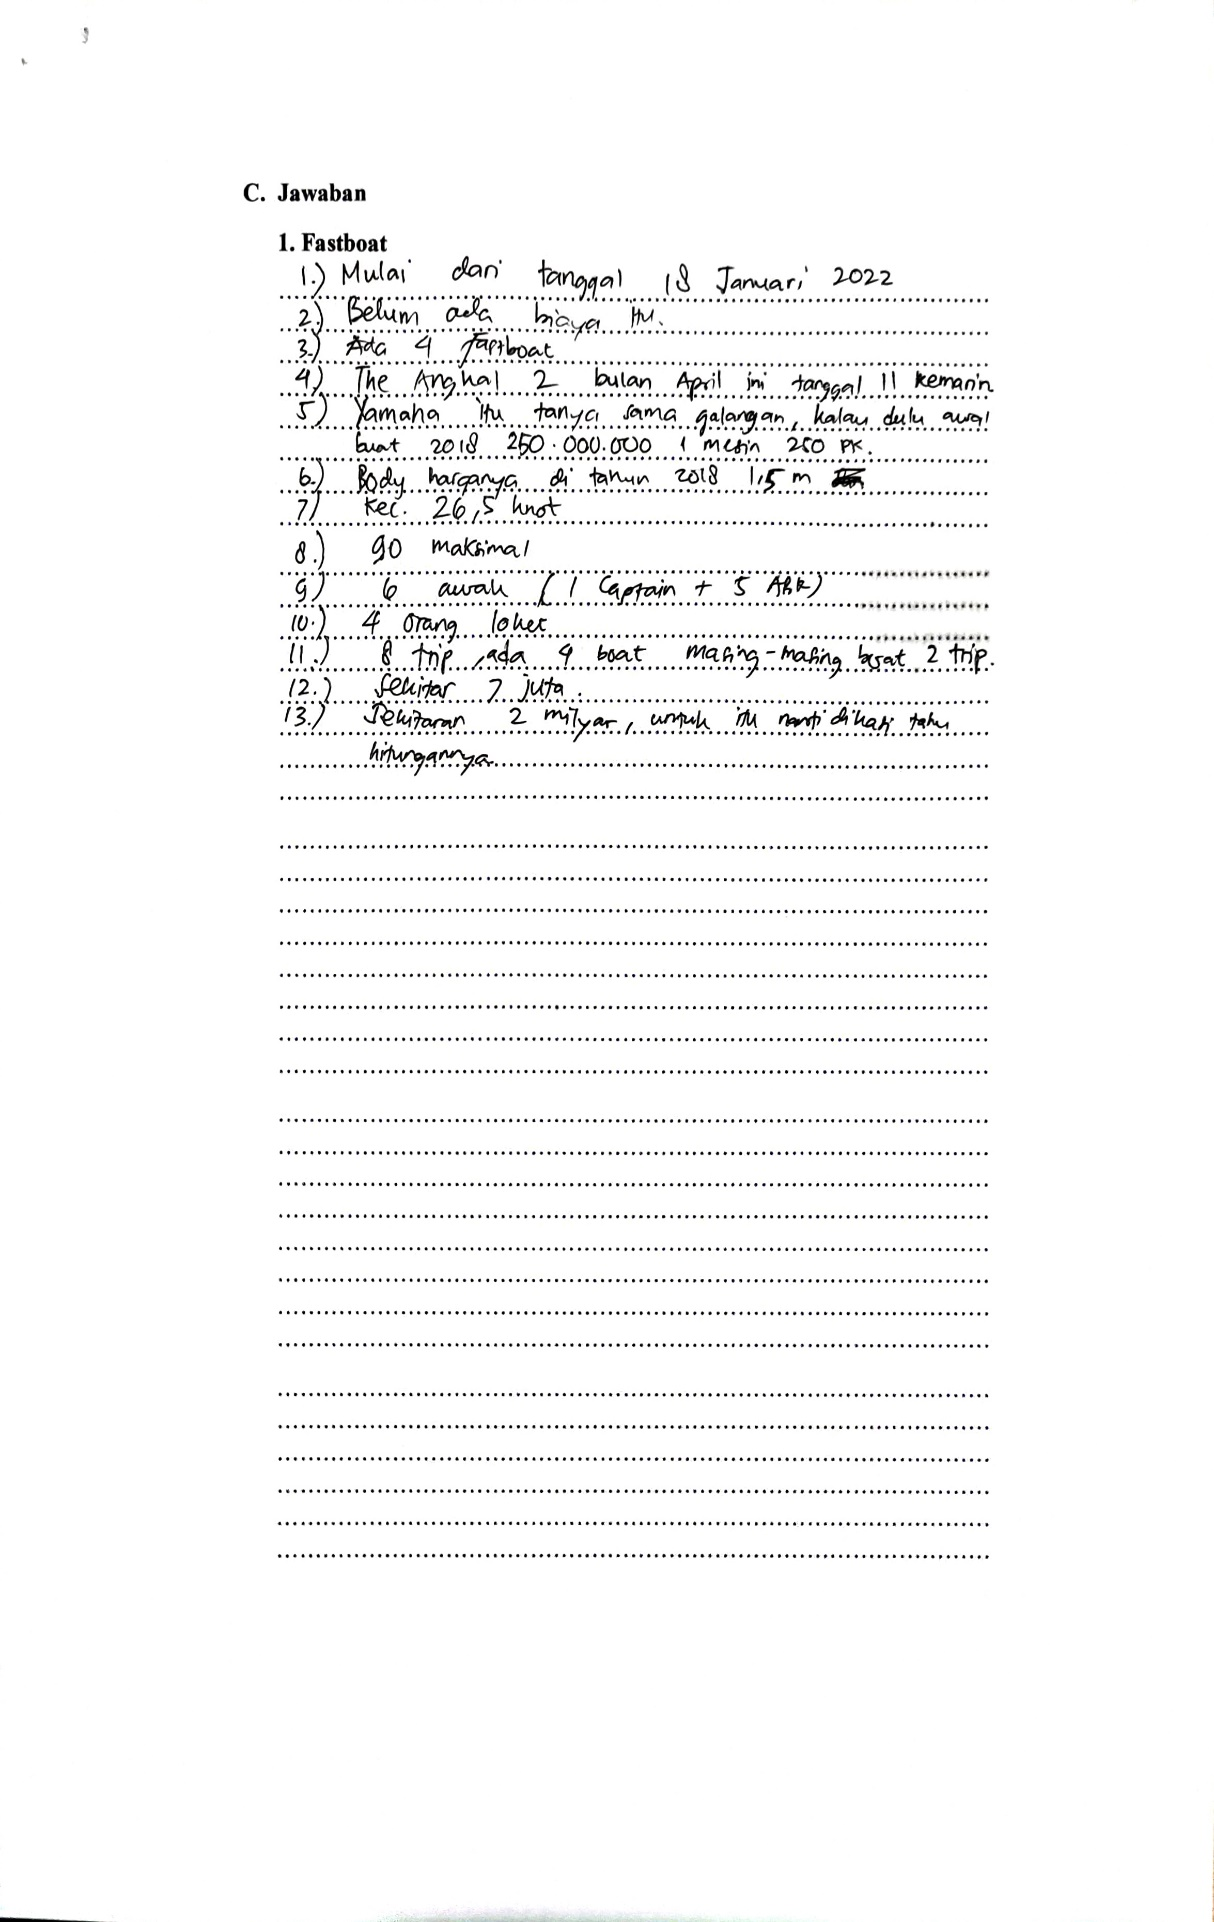 C. Jawaban
1. Fastboat
1.) Mulai dari tanggal 18 Januari 2022
2.) Belum ada biaya itu.
3.) Ada 4 fastboat
4.) The Angkal 2 bulan April ini tanggal 11 kemarin
5) Yamaha itu tanya sama galangan, kalau dulu awal
buat 2018 250.000.000 1 mesin 250 PK.
6.) Body harganya di tahun 2018 1,5 m
7) Kec. 26,5 knot
8.) 90 maksimal
9) 6 awak (1 Captain + 5 ABK)
10.) 4 orang loket
11.) 8 trip, ada 4 boat masing-masing 2 trip.
12.) Sekitar 7 juta.
13.) Sekitaran 2 milyar, untuk itu nanti dikasi tahu
hitungannya